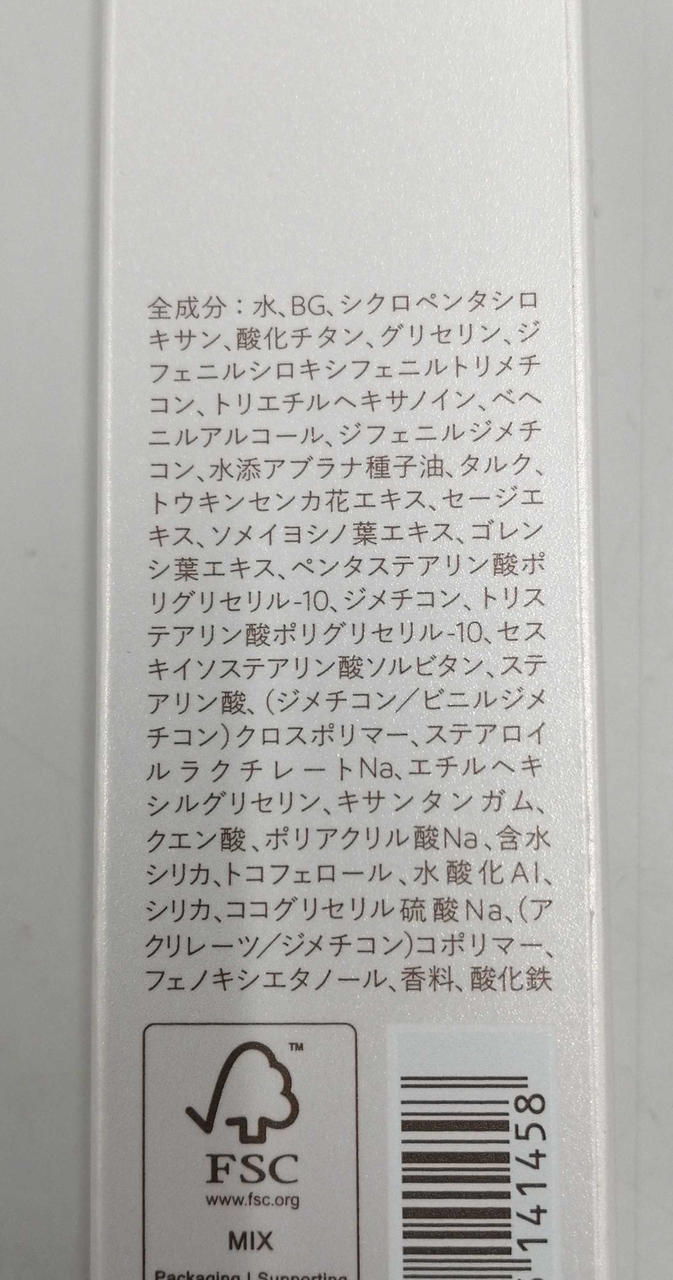 全成分：水、BG、シクロペンタシロ
キサン、酸化チタン、グリセリン、ジ
フェニルシロキシフェニルトリメチ
コン、トリエチルヘキサノイン、ベヘ
ニルアルコール、ジフェニルジメチ
コン、水添アブラナ種子油、タルク、
トウキンセンカ花エキス、セージエ
キス、ソメイヨシノ葉エキス、ゴレン
シ葉エキス、ペンタステアリン酸ポ
リグリセリル-10、ジメチコン、トリス
テアリン酸ポリグリセリル-10、セス
キイソステアリン酸ソルビタン、ステ
アリン酸、(ジメチコン／ビニルジメ
チコン)クロスポリマー、ステアロイ
ルラクチレートNa、エチルヘキ
シルグリセリン、キサンタンガム、
クエン酸、ポリアクリル酸Na、含水
シリカ、トコフェロール、水酸化Al、
シリカ、ココグリセリル硫酸Na、(ア
クリレーツ／ジメチコン)コポリマー、
フェノキシエタノール、香料、酸化鉄
TM
FSC
www.fsc.org
MIX
Packaging | Supporting
141458